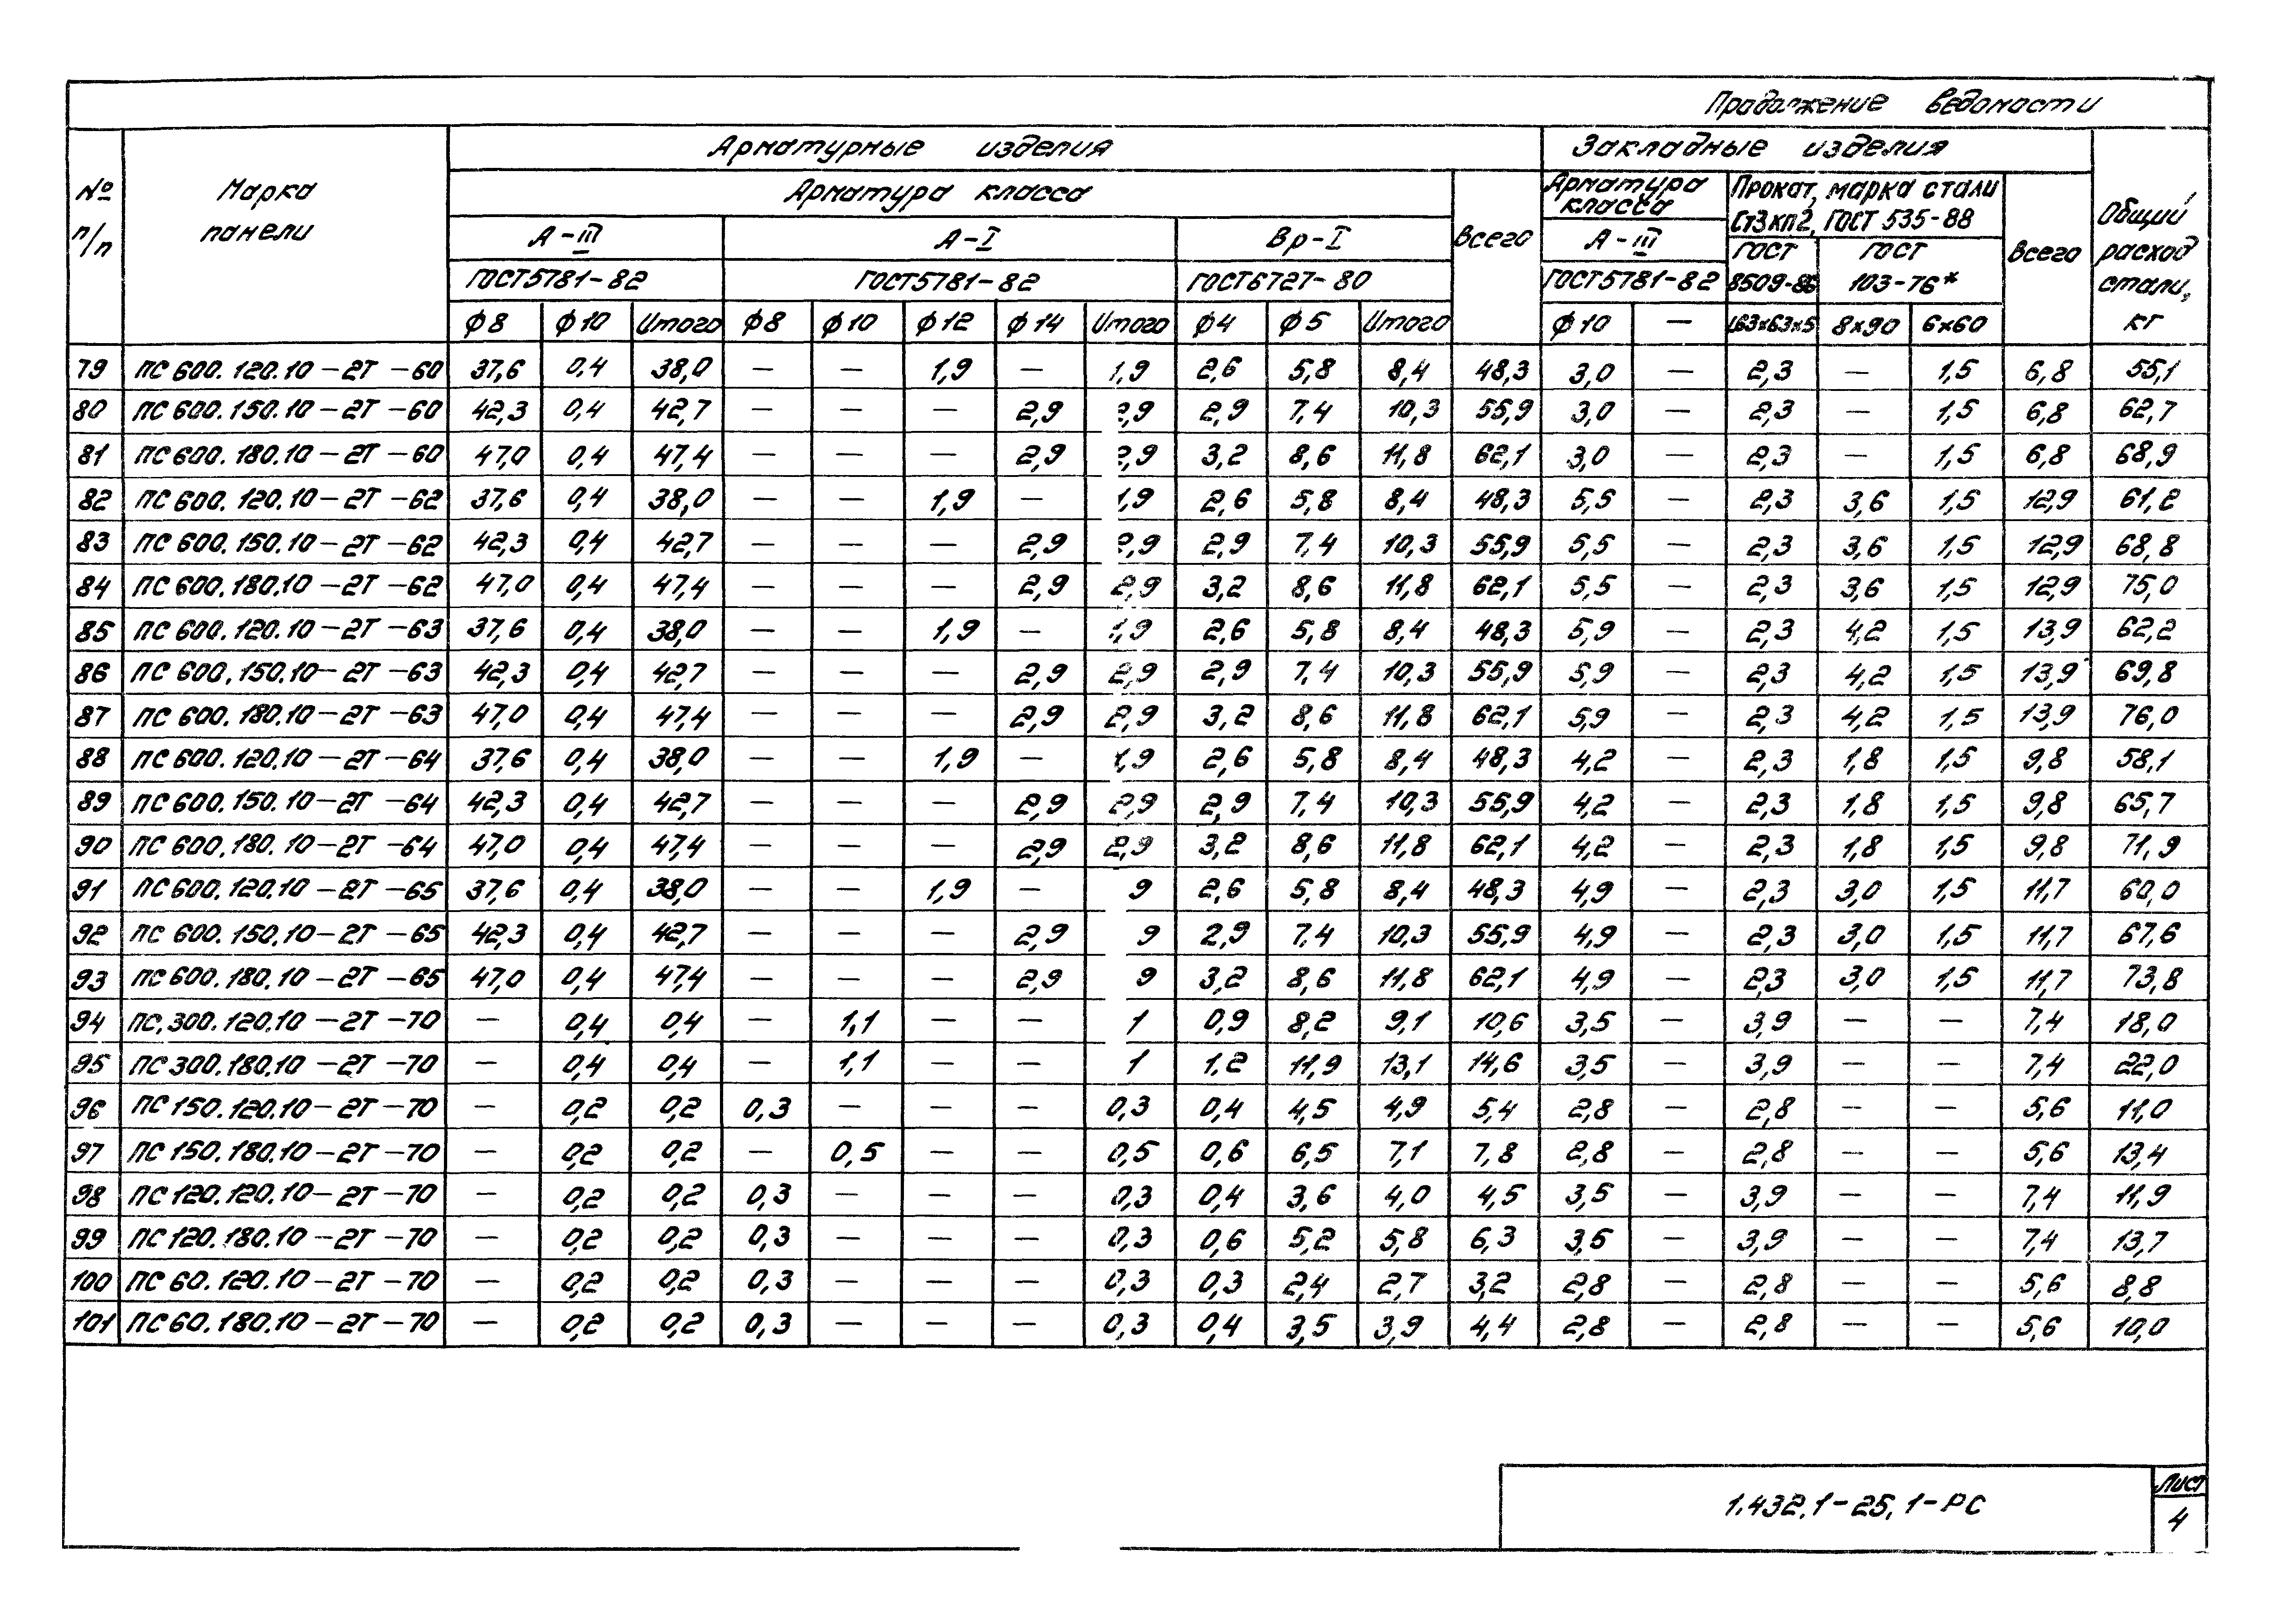 Продолжение ведомости
№ п/п
Марка панели
Арматурные изделия
Закладные изделия
Общий расход стали, кг
Арматура класса
Всего
Арматура класса
Прокат, марка стали Ст3кп2, ГОСТ 535-88
Всего
А-III
А-I
Вр-I
А-III
ГОСТ 8509-86
ГОСТ 103-76*
ГОСТ 5781-82
ГОСТ 5781-82
ГОСТ 6727-80
ГОСТ 5781-82
ϕ8 ϕ10 Итого ϕ8 ϕ10 ϕ12 ϕ14 Итого ϕ4 ϕ5 Итого ϕ10 — L63x63x5 8x90 6x60
79 ПС 600.120.10-2Т-60 37,6 0,4 38,0 — — 1,9 — 1,9 2,6 5,8 8,4 48,3 3,0 — 2,3 — 1,5 6,8 55,1
80 ПС 600.150.10-2Т-60 42,3 0,4 42,7 — — — 2,9 2,9 2,9 7,4 10,3 55,9 3,0 — 2,3 — 1,5 6,8 62,7
81 ПС 600.180.10-2Т-60 47,0 0,4 47,4 — — — 2,9 2,9 3,2 8,6 11,8 62,1 3,0 — 2,3 — 1,5 6,8 68,9
82 ПС 600.120.10-2Т-62 37,6 0,4 38,0 — — 1,9 — 1,9 2,6 5,8 8,4 48,3 5,5 — 2,3 3,6 1,5 12,9 61,2
83 ПС 600.150.10-2Т-62 42,3 0,4 42,7 — — — 2,9 2,9 2,9 7,4 10,3 55,9 5,5 — 2,3 3,6 1,5 12,9 68,8
84 ПС 600.180.10-2Т-62 47,0 0,4 47,4 — — — 2,9 2,9 3,2 8,6 11,8 62,1 5,5 — 2,3 3,6 1,5 12,9 75,0
85 ПС 600.120.10-2Т-63 37,6 0,4 38,0 — — 1,9 — 1,9 2,6 5,8 8,4 48,3 5,9 — 2,3 4,2 1,5 13,9 62,2
86 ПС 600.150.10-2Т-63 42,3 0,4 42,7 — — — 2,9 2,9 2,9 7,4 10,3 55,9 5,9 — 2,3 4,2 1,5 13,9 69,8
87 ПС 600.180.10-2Т-63 47,0 0,4 47,4 — — — 2,9 2,9 3,2 8,6 11,8 62,1 5,9 — 2,3 4,2 1,5 13,9 76,0
88 ПС 600.120.10-2Т-64 37,6 0,4 38,0 — — 1,9 — 1,9 2,6 5,8 8,4 48,3 4,2 — 2,3 1,8 1,5 9,8 58,1
89 ПС 600.150.10-2Т-64 42,3 0,4 42,7 — — — 2,9 2,9 2,9 7,4 10,3 55,9 4,2 — 2,3 1,8 1,5 9,8 65,7
90 ПС 600.180.10-2Т-64 47,0 0,4 47,4 — — — 2,9 2,9 3,2 8,6 11,8 62,1 4,2 — 2,3 1,8 1,5 9,8 71,9
91 ПС 600.120.10-2Т-65 37,6 0,4 38,0 — — 1,9 — 9 2,6 5,8 8,4 48,3 4,9 — 2,3 3,0 1,5 11,7 60,0
92 ПС 600.150.10-2Т-65 42,3 0,4 42,7 — — — 2,9 9 2,9 7,4 10,3 55,9 4,9 — 2,3 3,0 1,5 11,7 67,6
93 ПС 600.180.10-2Т-65 47,0 0,4 47,4 — — — 2,9 9 3,2 8,6 11,8 62,1 4,9 — 2,3 3,0 1,5 11,7 73,8
94 ПС.300.120.10-2Т-70 — 0,4 0,4 — 1,1 — — 1 0,9 8,2 9,1 10,6 3,5 — 3,9 — — 7,4 18,0
95 ПС 300.180.10-2Т-70 — 0,4 0,4 — 1,1 — — 1 1,2 11,9 13,1 14,6 3,5 — 3,9 — — 7,4 22,0
96 ПС 150.120.10-2Т-70 — 0,2 0,2 0,3 — — — 0,3 0,4 4,5 4,9 5,4 2,8 — 2,8 — — 5,6 11,0
97 ПС 150.180.10-2Т-70 — 0,2 0,2 — 0,5 — — 0,5 0,6 6,5 7,1 7,8 2,8 — 2,8 — — 5,6 13,4
98 ПС 120.120.10-2Т-70 — 0,2 0,2 0,3 — — — 0,3 0,4 3,6 4,0 4,5 3,5 — 3,9 — — 7,4 11,9
99 ПС 120.180.10-2Т-70 — 0,2 0,2 0,3 — — — 0,3 0,6 5,2 5,8 6,3 3,5 — 3,9 — — 7,4 13,7
100 ПС 60.120.10-2Т-70 — 0,2 0,2 0,3 — — — 0,3 0,3 2,4 2,7 3,2 2,8 — 2,8 — — 5,6 8,8
101 ПС 60.180.10-2Т-70 — 0,2 0,2 0,3 — — — 0,3 0,4 3,5 3,9 4,4 2,8 — 2,8 — — 5,6 10,0
1.432.1-25.1-РС
Лист
4